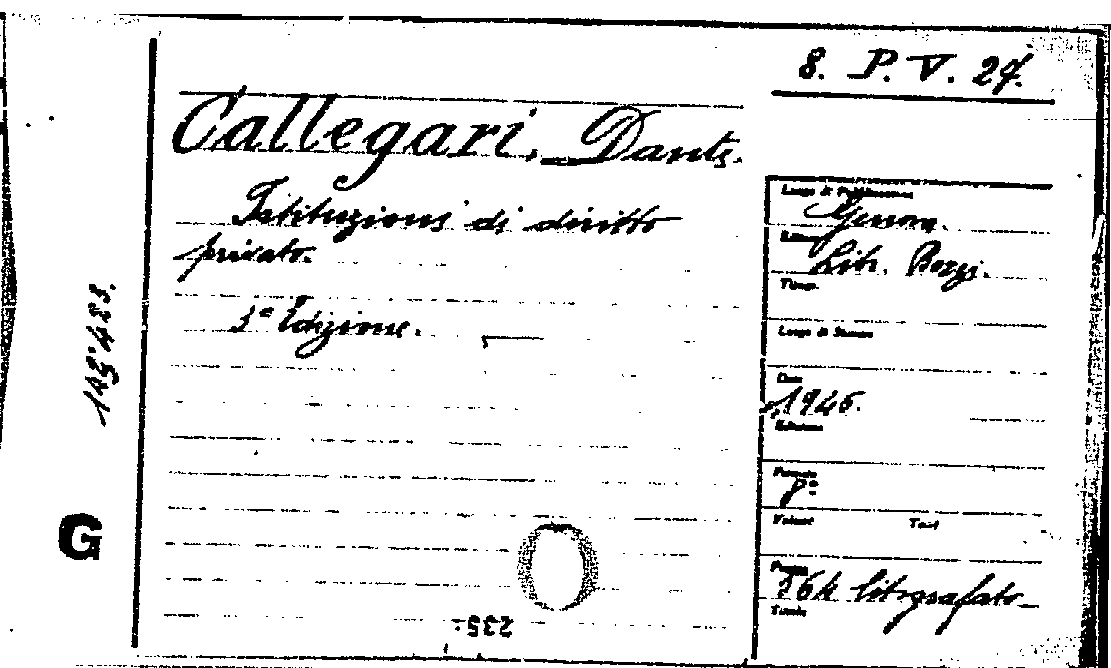 8. P. V. 27.
Callegari, Dante.
Istituzioni di diritto
privato.
3ª Edizione.
Luogo di Pubblicazione
Genova.
Libr. Bozzi.
Tipogr.
Luogo di Stampa
Data
1946.
Edizione
Formato
8°
Volumi
Tomi
litografato
Tavole
143'423.
G
235.